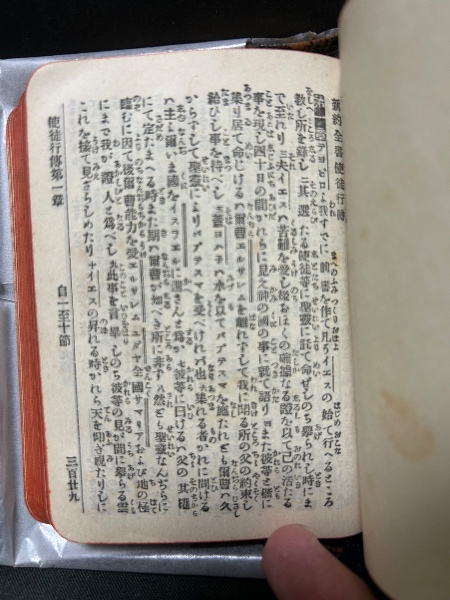 新約全書使徒行傳
第一章 一テヨピロよ我すでに前書を作て凡そイエスの始て行へるところ
教し所を錄し 二其選たる使徒等に聖靈に託て命ぜしのち擧られし時にま
で至れり 三夫イエスハ苦難を受し後おほくの確據なる證を以て己の活たる
事を現し四十日の間かれらに見え神の國の事に就て語り 四また彼等と偕に
集り居て命じけるハ爾曹エルサレムを離れずして我に聞る所の父の約束し
給ひし事を待べし 五蓋ヨハ子ハ水を以てバプテスマを施たれども爾曹ハ久
からずして聖靈によりバプテスマを受べければ也 六集れる者かれに問ける
ハ主よ爾いま國をイスラエルに還さんと爲か 七彼等に曰けるハ父の其權
にて定たまへる時また期ハ爾曹が知べき所に非ず 八然ども聖靈なんぢらに
臨むに因て後爾曹能力を受エルサレムユダヤ全國サマリアおよび地の極
にまで我が證人と爲べし 九此事を言畢しのち彼等の見が間に擧らる雲
これを接て見ざらしめたり 十イエスの昇れる時かれら天を仰ぎ視たりしに
使徒行傳第一章
自一至十節
三百廿九